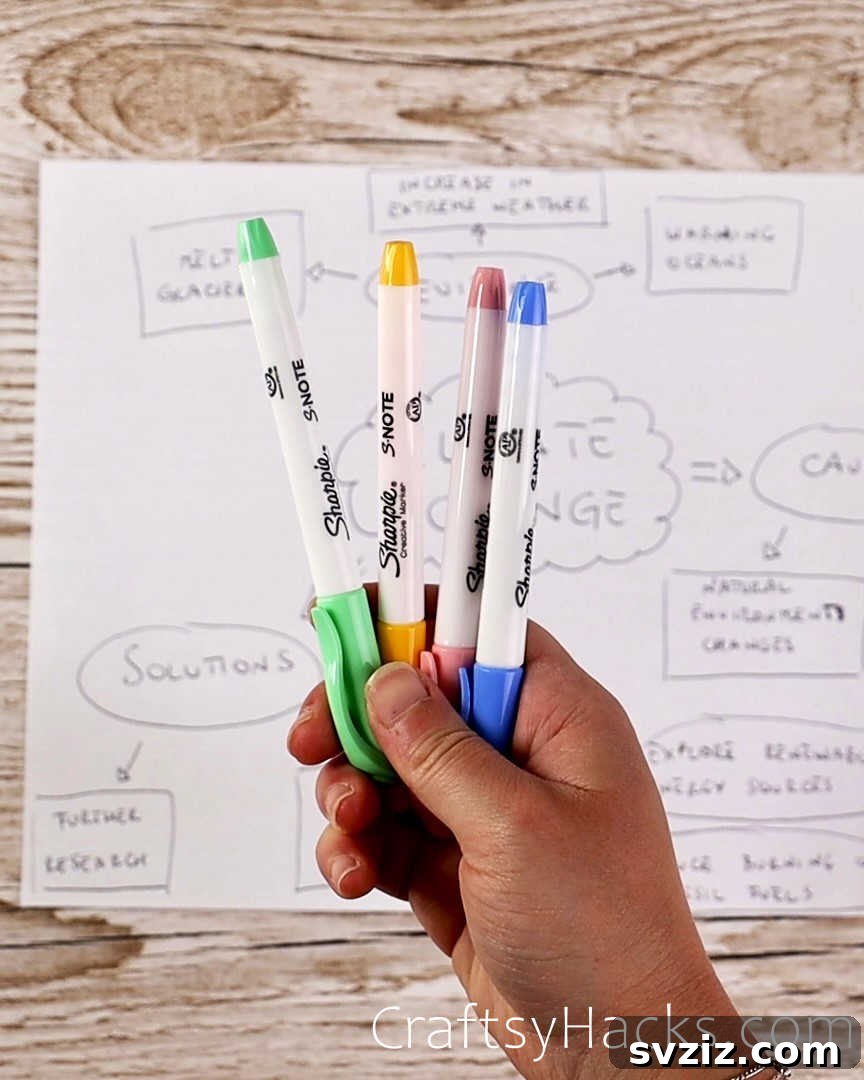 INCREASE IN
EXTREME WEATHER
MELT
GLACIER
WARMING
OCEANS
S·NOTE
Sharpie®
S·NOTE
Sharpie®
Creative Marker
S·NOTE
Sharpie
S·NOTE
Sharpie
TE
NGE
CAU
NATURAL
ENVIRONMENT
CHANGES
SOLUTIONS
FURTHER
RESEARCH
EXPLORE RENEWAB
NERGY SOURCES
NCE BURNING
SIL FUELS
CraftsyHacks.com
svziz.com